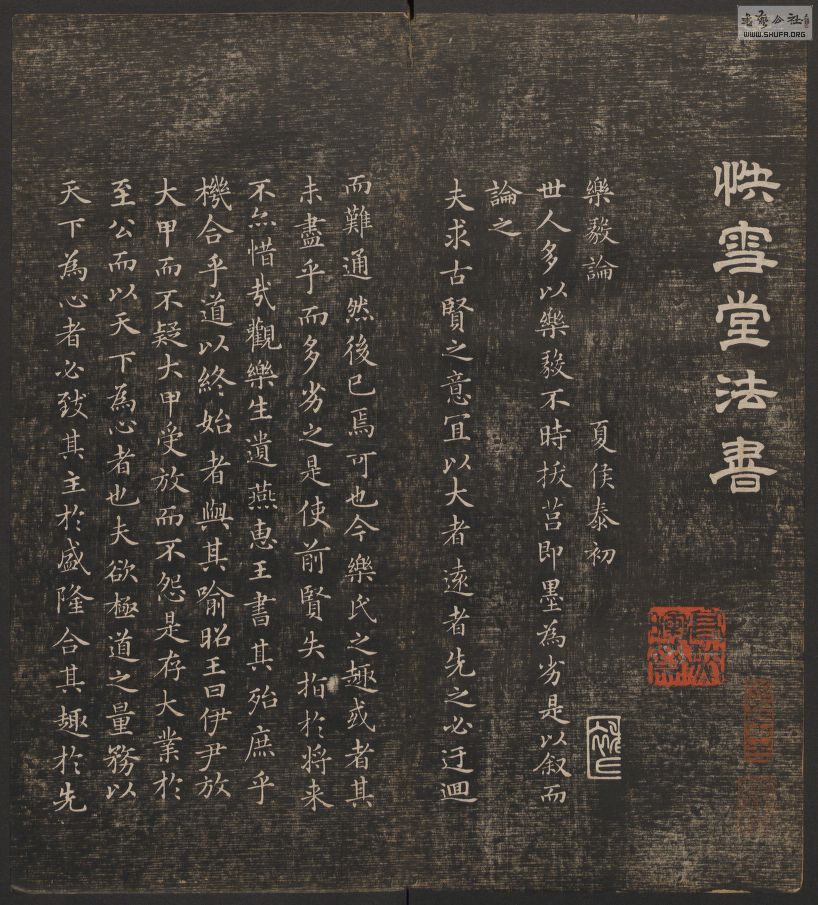 快雪堂法書
樂毅論 夏侯泰初
世人多以樂毅不時拔莒即墨為劣是以叙而
論之
夫求古賢之意冝以大者遠者先之必迂迴
而難通然後已焉可也今樂氏之趣或者其
未盡乎而多劣之是使前賢失指於將来
不亦惜㢤觀樂生遺燕惠王書其殆庶乎
機合乎道以終始者與其喻昭王曰伊尹放
大甲而不疑大甲受放而不怨是存大業於
至公而以天下為心者也夫欲極道之量務以
天下為心者必致其主於盛隆合其趣於先
书艺公社
WWW.SHUFA.ORG